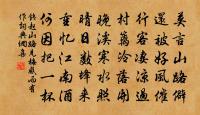 莫言山路僻
還被好風催
行客凄涼過
村籬冷落開
晚溪寒水照
晴日數蜂來
重憶江南酒
何因把一杯
錢起山路見梅感而有
作詞典網書